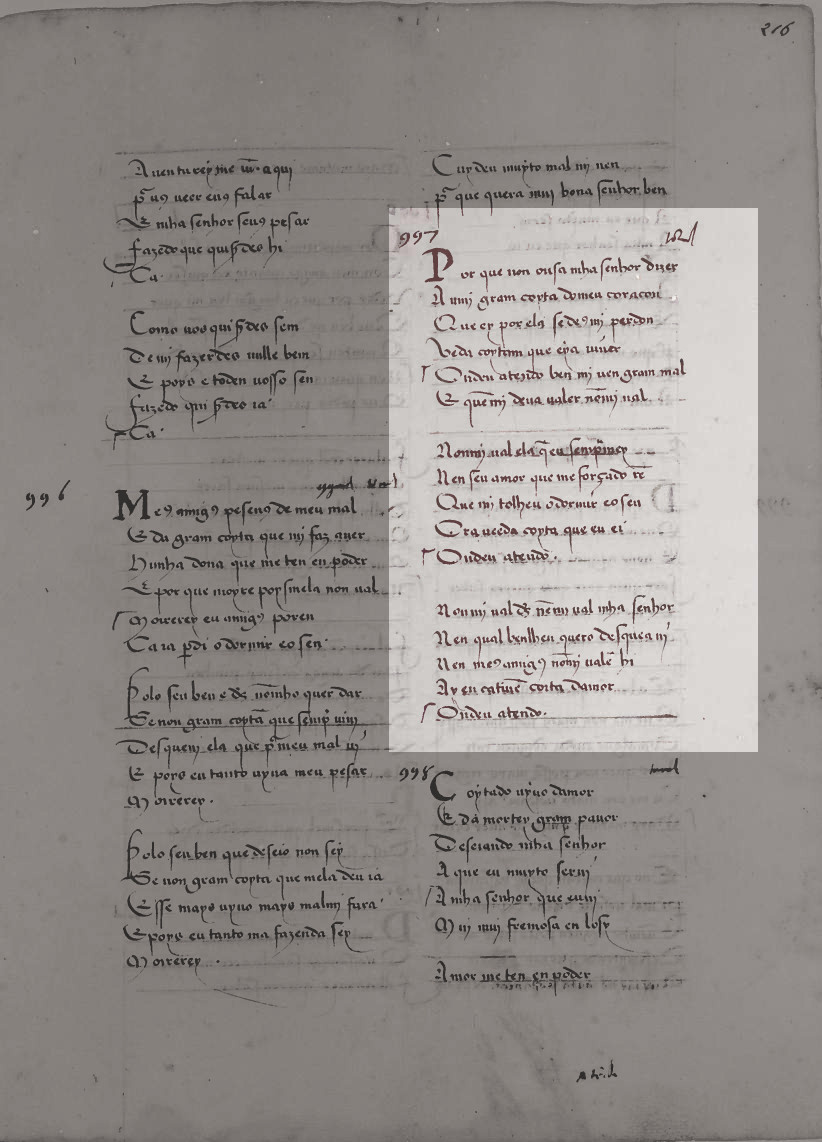 216
Auenturey me uir aqui
pᵃ uꝯ ueer euꝯ falar
E mha senhor seuꝯ pesar
fazedo que quisdes hi
Ca
Como uos quisdes sem
De mi fazerdes mille bem
E poys e toden uosso sen
fazedo qui sdes ia
Ca
996
Meꝯ amigꝯ pesenꝯ de meu mal
E da gram coyta que mi faz auer
Hunha dona que me ten en poder
E por que moyre poys mela non ual
Moirerey eu amigꝯ poren
Ca ia pdi o dormir eo sen
Polo seu ben e ds nōmho quer dar
Se non gram coyta que semp ui
Des que ui ela que pᵃ meu mal ui
E poys eu tanto uyua meu pesar
Moirerey
Polo seu ben que deseio non sey
Se non gram coyta que mela deu ia
Esse mays uyuo mays malmi fara
E poys eu tanto ma fazenda sey
Moirerey
Cuydeu muyto mal mi uen
pᵃ que quera mui bona senhor ben
997
Por que non ousa mha senhor dizer
A mui gram coyta do meu coraçon
Que ey por ela se deꝯ mi perdon
Veda coytam que eyia uiuer
Ondeu atendo ben mi uen gram mal
E quē mi deua ualer nēmi ual
Nonmi ual ela q̄ eu semp amey
Nen seu amor que me forçado tē
Que mi tolheu o dormir eo sen
Era ueeda coyta que eu ei
Ondeu atendo
Nonmi ual ds nēmi ual mha senhor
Nen qual ben lheu quero des que a ui
Nen meꝯ amigꝯ nōmi ualē hi
Ay eu catiuē coita damor
Ondeu atendo
998
Coytado uyuo damor
E da mortey gram pauor
Deseiando mha senhor
A que eu muyto serui
A mha senhor que eu ui
Mui mui fremosa en losy
Amor me ten en poder